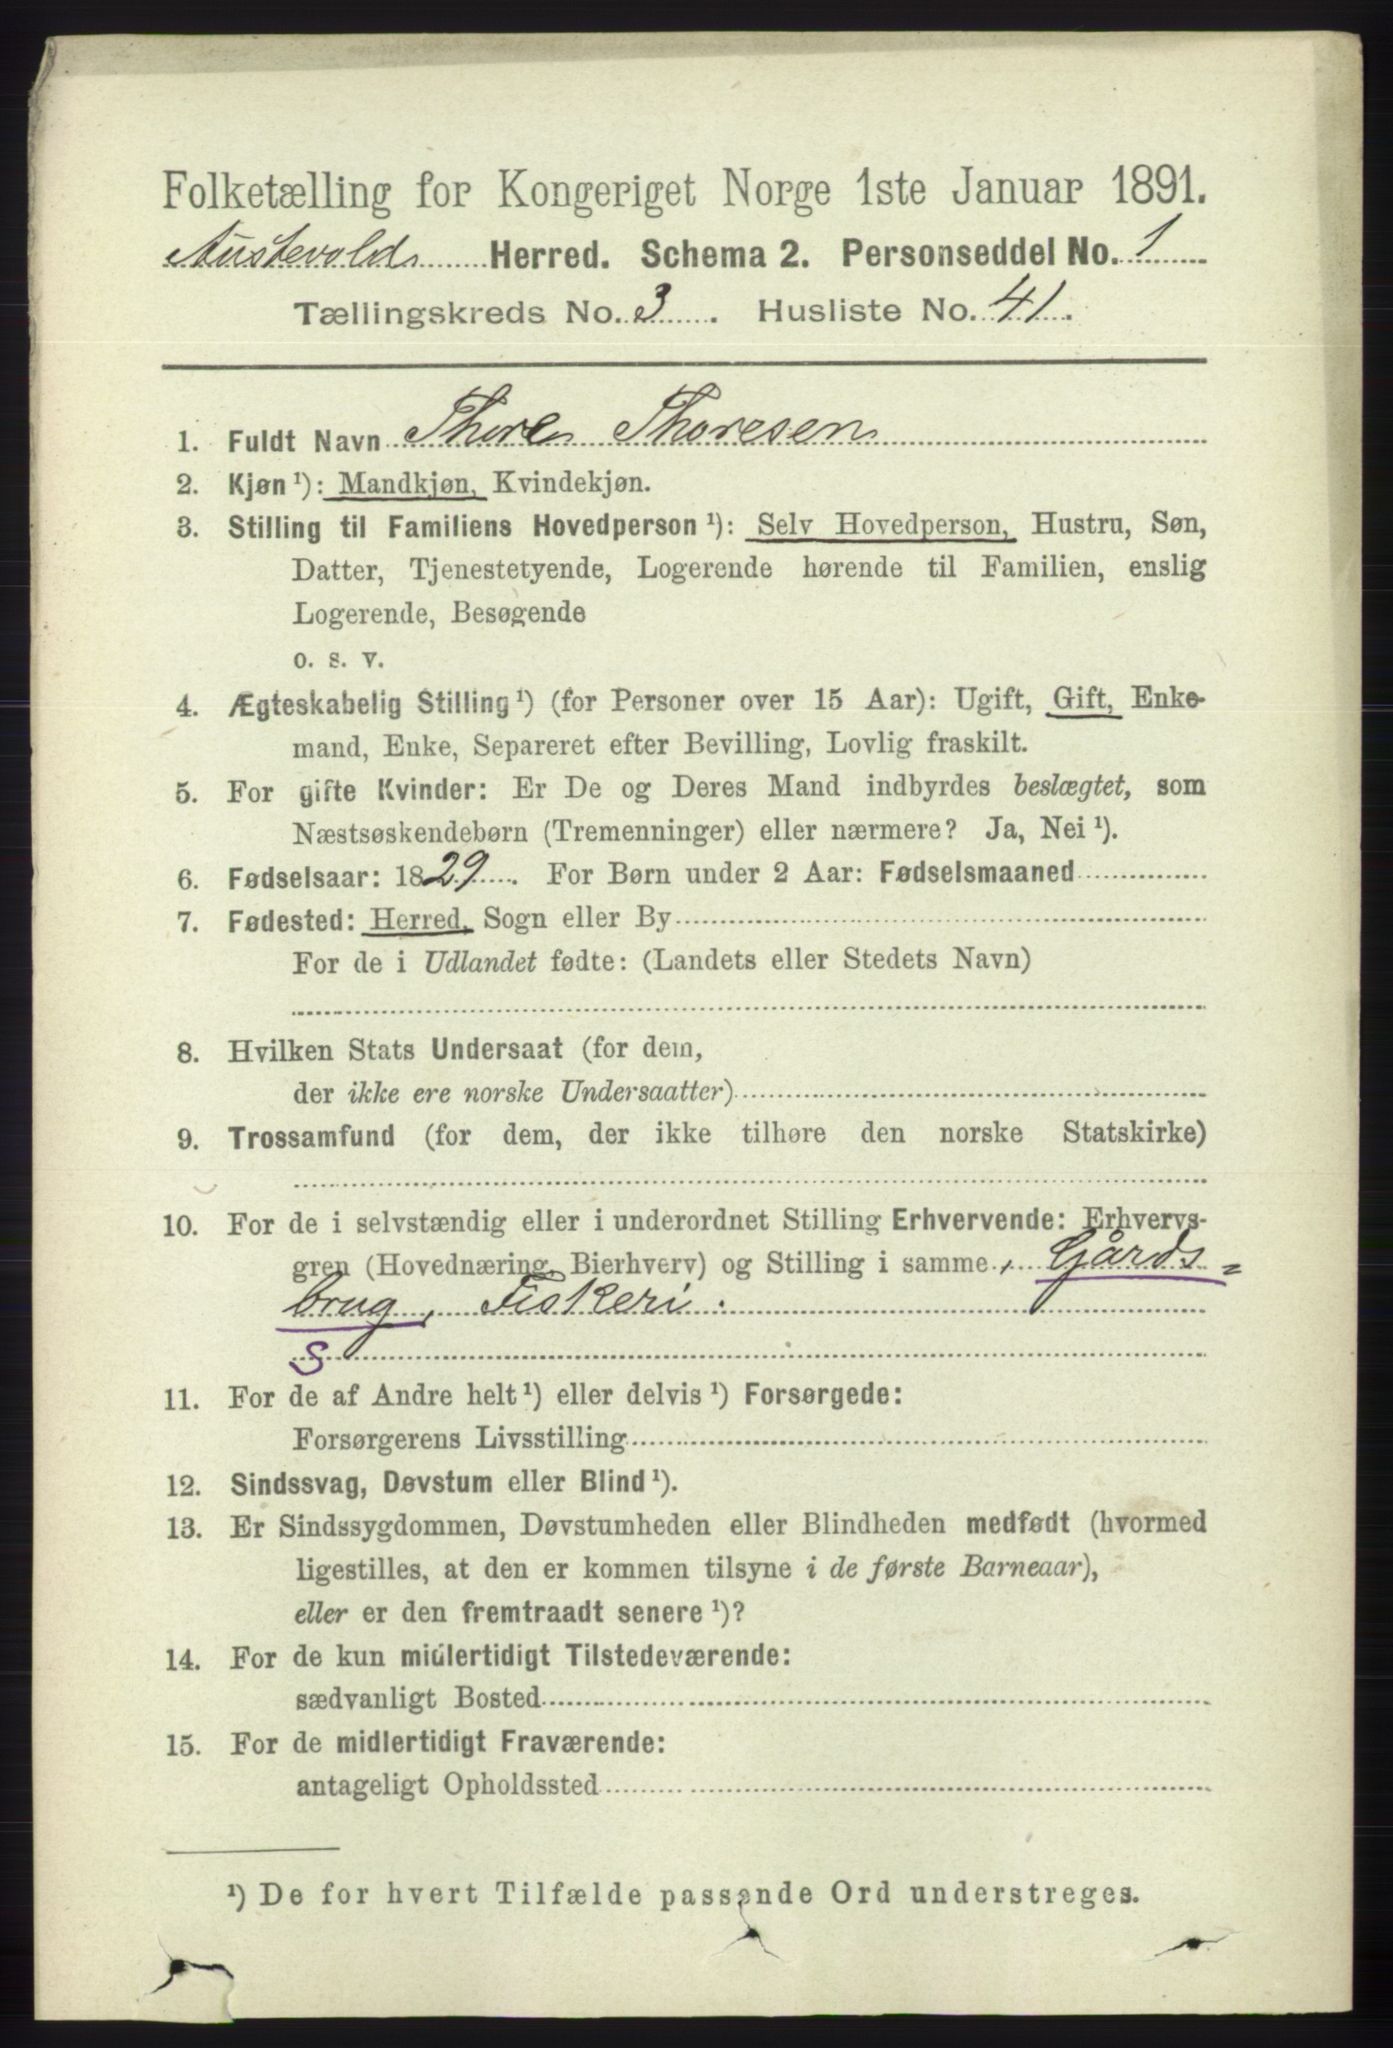 Folketælling for Kongeriget Norge 1ste Januar 1891.
Austevolds Herred. Schema 2. Personseddel No. 1
Tællingskreds No. 3. Husliste No. 41.
1. Fuldt Navn Thore Thoresen
2. Kjøn ¹): Mandkjøn, Kvindekjøn.
3. Stilling til Familiens Hovedperson ¹): Selv Hovedperson, Hustru, Søn,
Datter, Tjenestetyende, Logerende hørende til Familien, enslig
Logerende, Besøgende
o. s. v.
4. Ægteskabelig Stilling ¹) (for Personer over 15 Aar): Ugift, Gift, Enke-
mand, Enke, Separeret efter Bevilling, Lovlig fraskilt.
5. For gifte Kvinder: Er De og Deres Mand indbyrdes beslægtet, som
Næstsøskendebørn (Tremenninger) eller nærmere? Ja, Nei ¹).
6. Fødselsaar: 1829. For Børn under 2 Aar: Fødselsmaaned
7. Fødested: Herred, Sogn eller By
For de i Udlandet fødte: (Landets eller Stedets Navn)
8. Hvilken Stats Undersaat (for dem,
der ikke ere norske Undersaatter)
9. Trossamfund (for dem, der ikke tilhøre den norske Statskirke)
10. For de i selvstændig eller i underordnet Stilling Erhvervende: Erhvervs-
gren (Hovednæring, Bierhverv) og Stilling i samme, Gårds=
brug, Fiskeri.
S
11. For de af Andre helt ¹) eller delvis ¹) Forsørgede:
Forsørgerens Livsstilling
12. Sindssvag, Døvstum eller Blind ¹).
13. Er Sindssygdommen, Døvstumheden eller Blindheden medfødt (hvormed
ligestilles, at den er kommen tilsyne i de første Barneaar),
eller er den fremtraadt senere ¹)?
14. For de kun midlertidigt Tilstedeværende:
sædvanligt Bosted
15. For de midlertidigt Fraværende:
antageligt Opholdssted
¹) De for hvert Tilfælde passende Ord understreges.